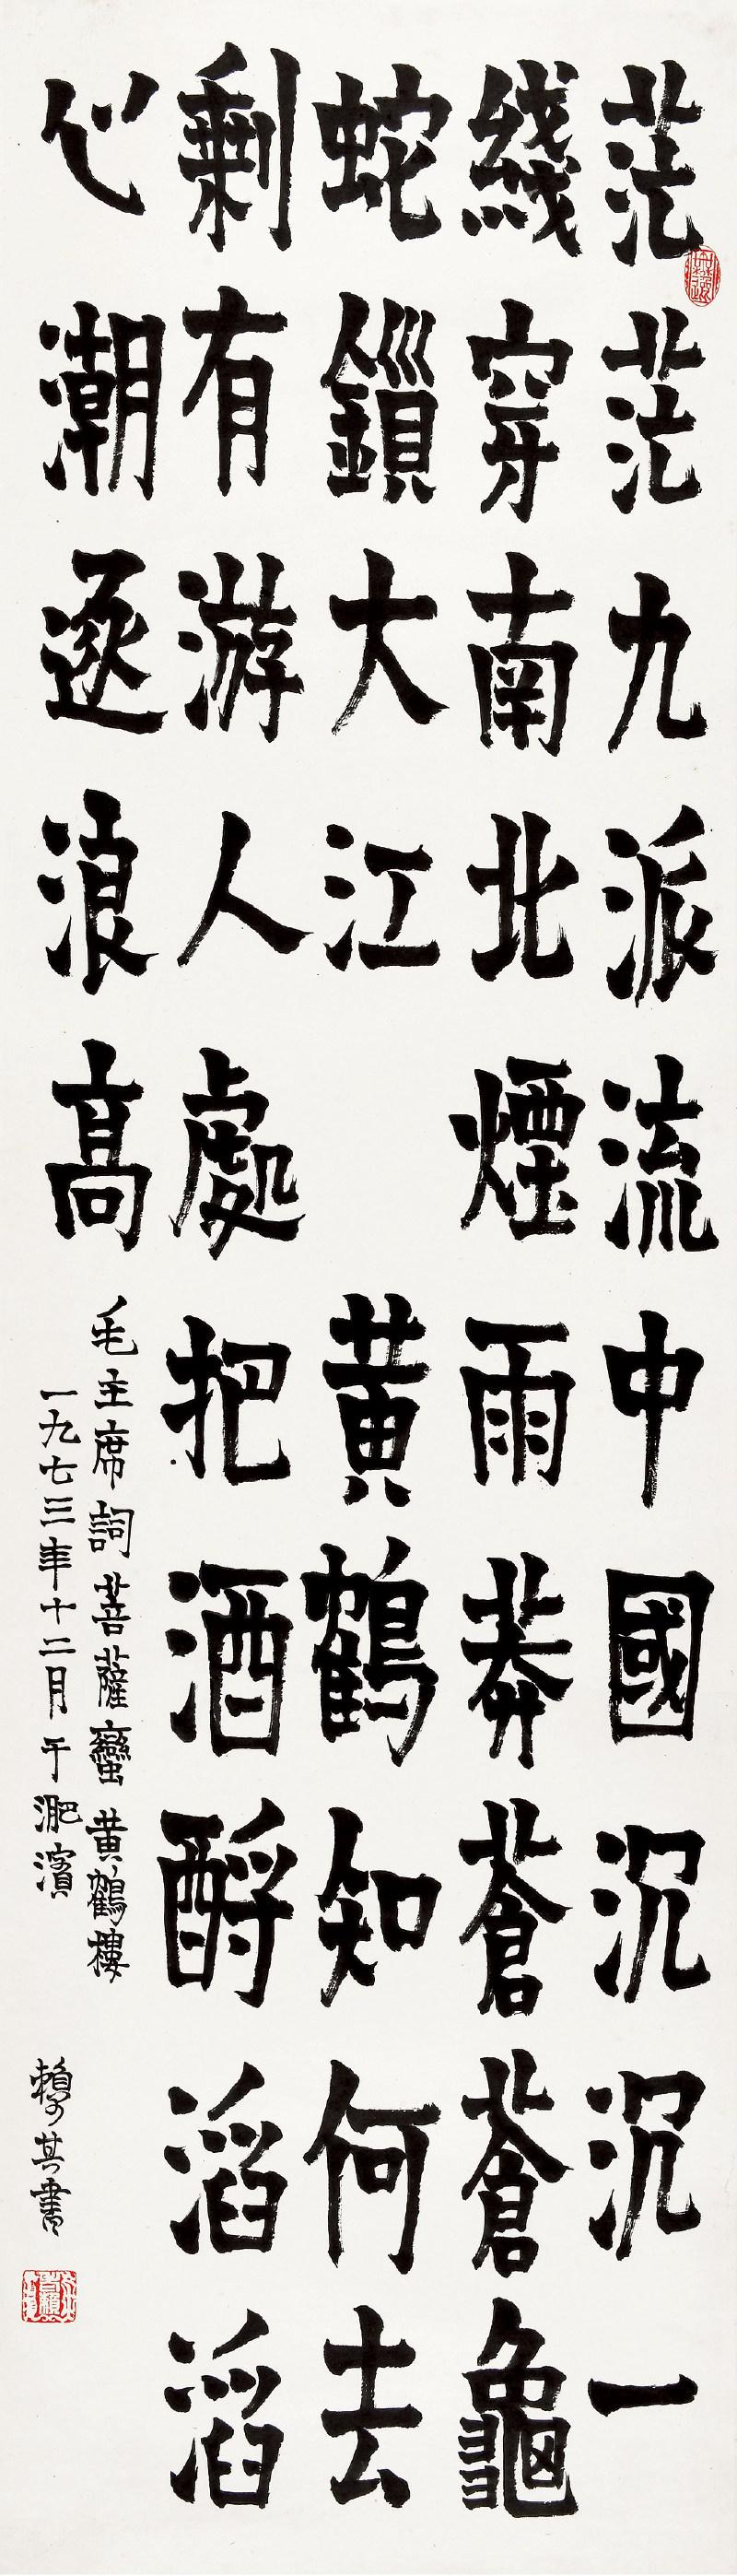 茫茫九派流中國沉沉一
綫穿南北煙雨莽蒼蒼龜
蛇鎖大江 黃鶴知何去
剩有游人處把酒酹滔滔
心潮逐浪高
毛主席詞菩薩蠻黃鶴樓
一九七三年十二月于淝濱
賴少其書